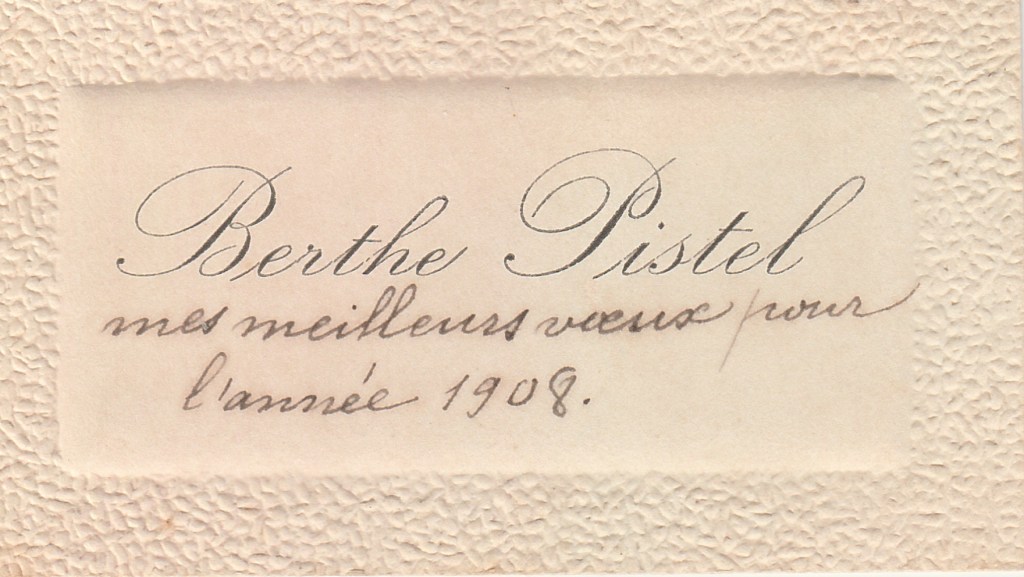 Berthe Pistel
mes meilleurs vœux pour
l'année 1908.